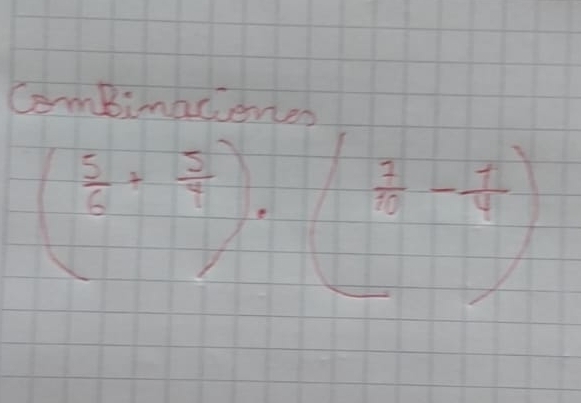 Combinaciones
(5/6 + 5/4) . (7/10 - 1/4)